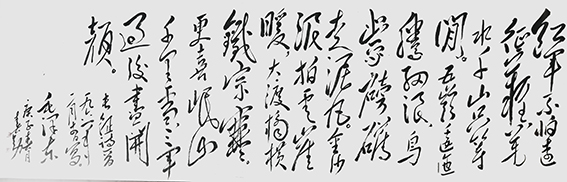 红军不怕远
征难万
水千山只等
闲。五岭逶迤
腾细浪,乌
蒙磅礴
走泥丸。金沙
浪拍云崖
暖,大渡桥横
铁索寒。
更喜岷山
千里雪,三军
过后尽开
颜。
毛泽东
庚子